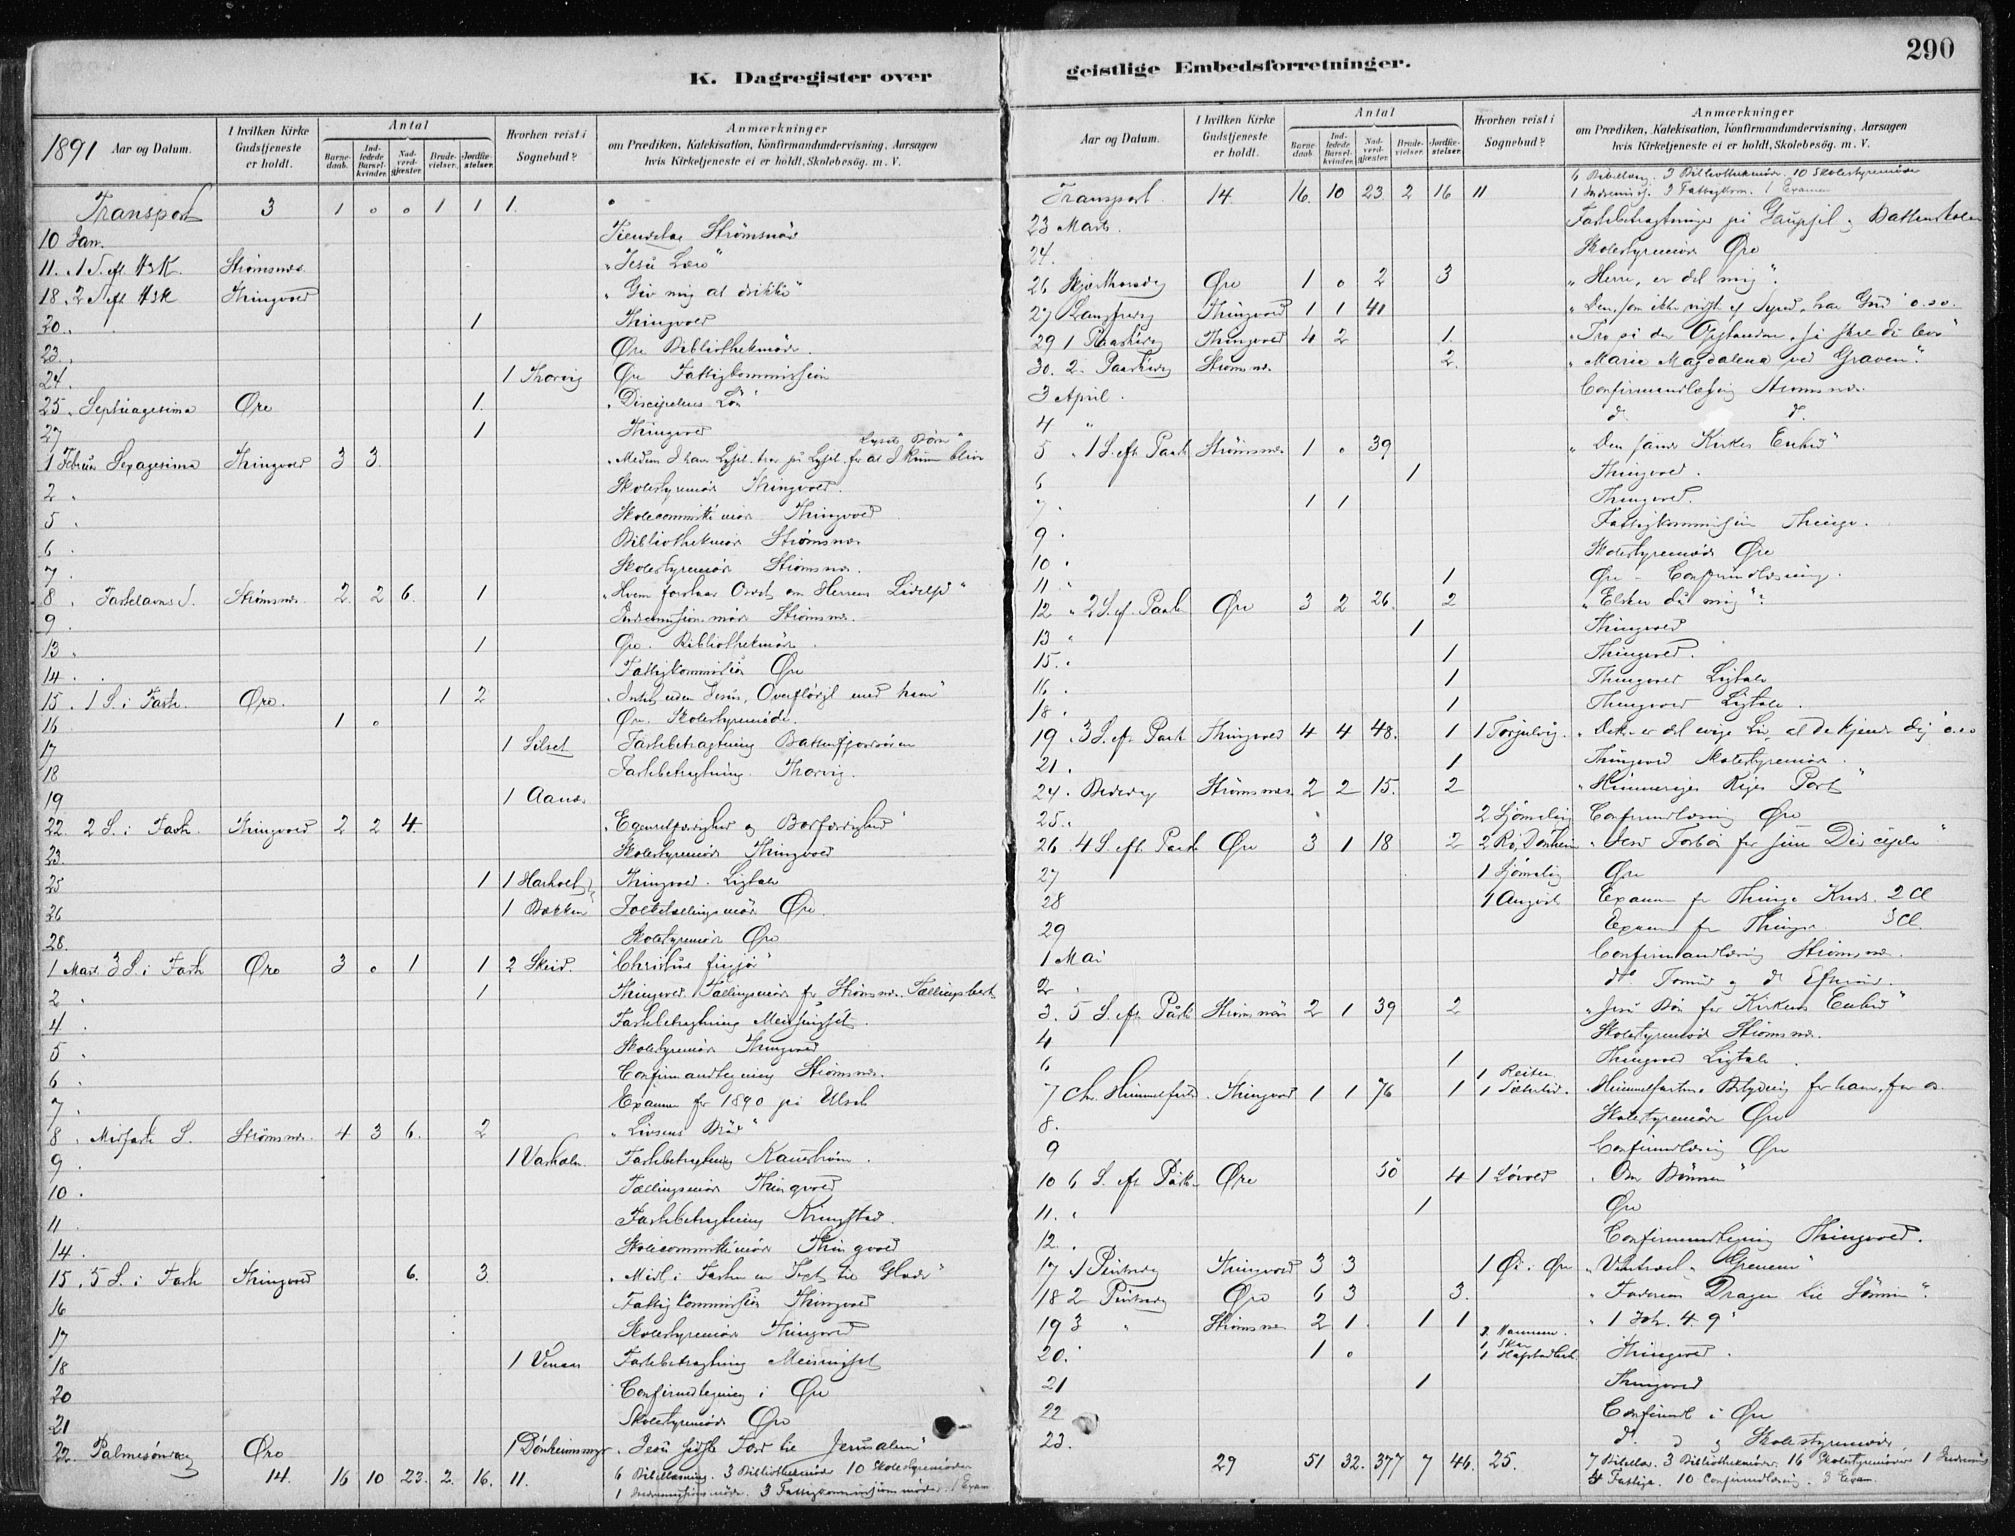 290
K. Dagregister over
geistlige Embedsforretninger.
1891 Aar og Datum. I hvilken Kirke Gudstjeneste er holdt. Antal Barnedaab. Indledede Barselkvinder. Nadverdgjæster. Brudevielser. Jordfæstelser. Hvorhen reist i Sognebud? Anmærkninger om Prædiken, Katekisation, Konfirmandundervisning, Aarsagen hvis Kirketjeneste ei er holdt, Skolebesøg. m. V.
Transport 3 1 0 0 1 1 1
10 Jan. Strømsnæs
11. 1 S. eft. H3K. Strømsnæs "Jesu Lære"
18. 2 S. eft H3K Thingvold "Giv mig at drikke"
20. 1 Thingvold
23. Øre Bibliothekmøde
24. 1 Thorvig Øre Fattigkommission
25. Septuagesima Øre 1. "Disciplenes Løn"
27 1 Thingvold
1 Februar Sexagesima Thingvold 3 3 "Medens I have Lyset, tro på Lyset, for at I kunne blive Lysets Børn"
2 Skolestyremøde Thingvold.
5 Skolecommitte møde Thingvold
6. Bibliothekmøde Strømsnæs
7. Skolestyremøde Strømsnæs.
8. Fastelavns S. Strømsnæs. 2 2 6. 1 "Hvem forstaar Ordet om Herrens Lidelse"
9. Indremissions møde Strømsnæs.
13 1 Øre. Bibliothekmøde.
14. Fattigkommission Øre
15. 1 S. i Fast. Øre. 1 2 "Intet uden Jesus, Overflødigt med ham"
16 1 0 Øre. Skolestyremøde.
17 1 Silset Fastebetragtning Battenfjordsøren
18 Fastebetragtning. Thorvig.
19 1 Aanæs
22. 2 S. i Faste. Thingvold 2 2 4. "Egenretfærdighed og Botfærdighed"
23. Skolestyremøde Thingvold
25 1 1 Harkolt Thingvold. Ligtale
26 1 Bækken Folketællingsmøde Øre.
28. Skolestyremøde Øre
1 Mart. 3 S. i Faste Øre 3 0 1 1 2 Skeid.
2 1 Thingvold. Tællingsmøde for Strømsnæs
4 Fastebetragtning Meisingset.
5 Skolestyremøde Thingvold
6 Confirmandlæsning Strømsnæs.
7. Examen for 1890 på Ulset
8. Midfaste S. Strømsnæs. 4 3 6. 2 "Livsens Brød"
9. 1 Varholm. Fastebetragtning Kanestrøm.
10 Tællingsmøde Thingvold
11 Fastebetragtning Ringstad.
14. Skolecommittemøde Thingvold
15. 5 S. i Faste Thingvold 6. 3. "Midt i Fasten en Text til Glæde"
16 Fattigkommission Thingvold
17. Skolestyremøde Thingvold
18 1 Venaas Fastebetragtning Meisingset
20 Confirmandlæsning i Øre
21 Skolestyremøde Øre
22. Palmesøndag Øre 1 Dønheimsmyr "Jesu sidste Færd til Jerusalem"
14. 16 10 23. 2 16. 11. 6 Bibellæsning. 3 Bibliothekmøder 10 Skolestyremøder
1 Indremissionsmøde. 3 Fattigkommissionsmøder. 1 Exam
Aar og Datum. I hvilken Kirke Gudstjeneste er holdt. Antal Barnedaab. Indledede Barselkvinder. Nadverdgjæster. Brudevielser. Jordfæstelser. Hvorhen reist i Sognebud? Anmærkninger om Prædiken, Katekisation, Konfirmandundervisning, Aarsagen hvis Kirketjeneste ei er holdt, Skolebesøg. m. V.
6 Bibellæsn. 3 Bibliothekmøder. 10 Skolestyremøder
Transport. 14 16. 10 23. 2 16 11 1 Indremissj. 3 Fattigkom. 1 Examen
23 Marts. Fastebetragtninger på Gaupset og Battenskolen
24. Skolestyremøde Øre
26 Skjærthorsdag Øre 1 0 2 3 "Herre, er det mig".
27 Langfredag Thingvold 1 1 41
29 1 Paaskedag Thingvold 4 2 1. "Tro på den Opstandne, så skal du leve"
30. 2. Paaskedag Strømsnæs 2. "Maria Magdalena ved Graven".
3 April. Confirmandlæsning Strømsnæs.
4 d. d.
5 1 S. eft. Paaske Strømsnæs 1 0 39 "Den sande Kirkes Enhed"
6 1 Thingvold.
7. 1 1 Thingvold.
9 Fattigkommission Thingv.
10 Skolestyremøde Øre
11. 1 Øre - Confirmandlæsning.
12 2 S. ef. Paaske Øre 3 2 26. 2 "Elsker du mig":
13 1 Thingvold
15. 1 Thingvold.
16. 1 Thingvold Ligtale
18. 1 Thingvold Ligtale.
19 3 S. eft. Paaske Thingvold 4 4 48. 1 1 Torjulvig. "Dette er det evige Liv, at de kjende dig" o.s.v
21. 1 Thingvold Skolestyremøde.
24. Bededag Strømsnæs 2 2 15. 2 "Himmeriges Riges Port"
25. 2 Sjømelig Confirmandlæsning Øre
26 4 S. eft. Paaske Øre 3 1 18 2 2 Rø, Dønheim "Jesu Forbøn for sine Disciple"
27 1 Sjømelig Øre
28 1 Angvik Examen for Thingv. Kreds. 2 Cl
29 Examen for Thingv. 3 Cl.
1 Mai Confirmandlæsning Strømsnæs.
2
3. 5 S. eft. Påske Strømsnæs 2 1 39 2 "Jesu Bøn for Kirkens Enhed"
4 Skolestyremøde Strømsnæs.
6 1 Thingvold Ligtale.
7 Ch. Himmelfartsd. Thingvold 1 1 76 1 1 Reiten 1 Sæterlid. Himmelfartens Betydning for ham, for os.
8. Skolestyremøde Øre
9 Confirmandlæsning Øre
10 6 S. eft Påske Øre 30 4 1 Løvold "Om Bønnen"
11. 1 Øre
12. Confirmandlæsning Thingvold.
17 1 Pintsedag Thingvold 3 3 1 Øi i Øre "Vintræet og Grenene"
18 2 Pintsedag Øre 6 3 3. "Faderens Dragen til Sønnen".
19 3 " Strømsnæs 2 1. 1 1 "1 Joh. 4. 9"
20. 1 0 Thingvold.
21 1 Thingvold
22 Confirmdl. i Øre
23. d. d. og Skolestyremøde.
29 51 32. 377 7 46. 25. 7 Bibellæs. 3 Bibliothekmøder. 16 Skolestyremøder 1 Indremis
4 Fattigk. 10 Confirmandlæsning. 3 Exam.